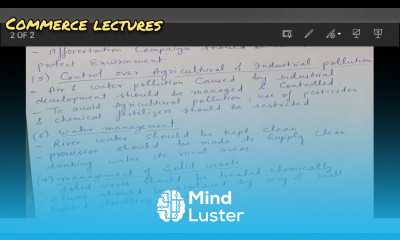 COMMERCE LECTURES
2 OF 2
- Afforestation Campaign should be
Protect Environment
(5) Control over Agricultural & Industrial pollution
- Air & water pollution caused by industrial
development should be managed & controlled.
- To avoid Agricultural pollution, use of pesticides
& chemical fertilizers should be restricted
(6) Water management
- River water should be kept clean
- provision should be made to supply clean
drinking water to rural areas
(7) management of solid waste
- solid waste should be treated chemically
- slums should be replaced by
Mind
Luster